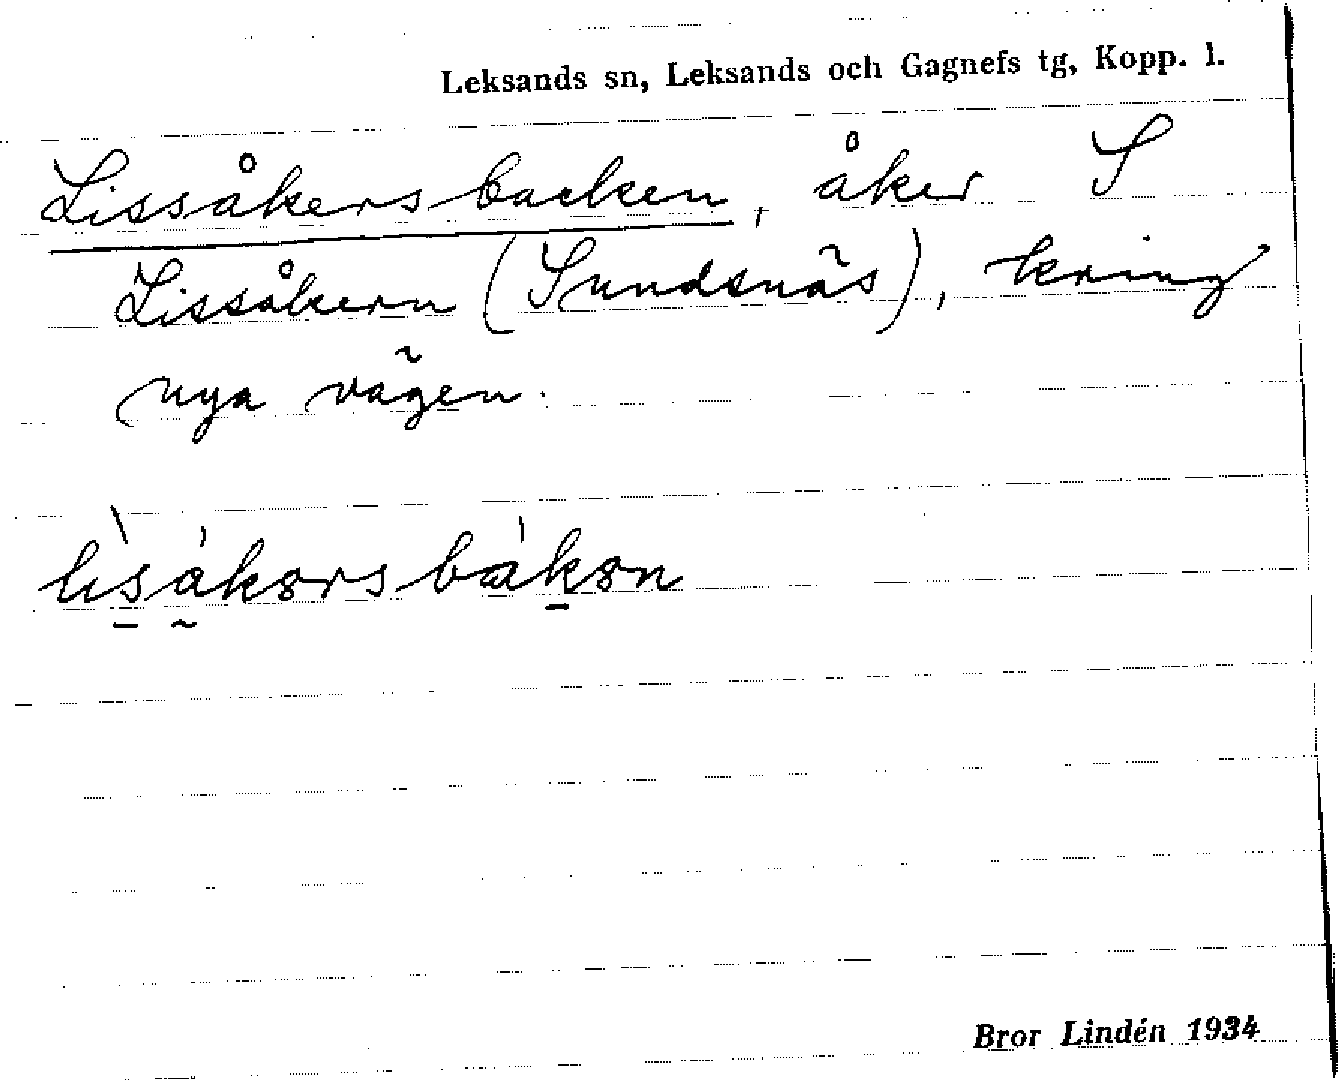 Leksands sn, Leksands och Gagnefs tg, Kopp. l.
Lissåkersbacken, åker S
Lissåkern (Sundsnäs), kring
nya vägen.
Bror Lindén 1934